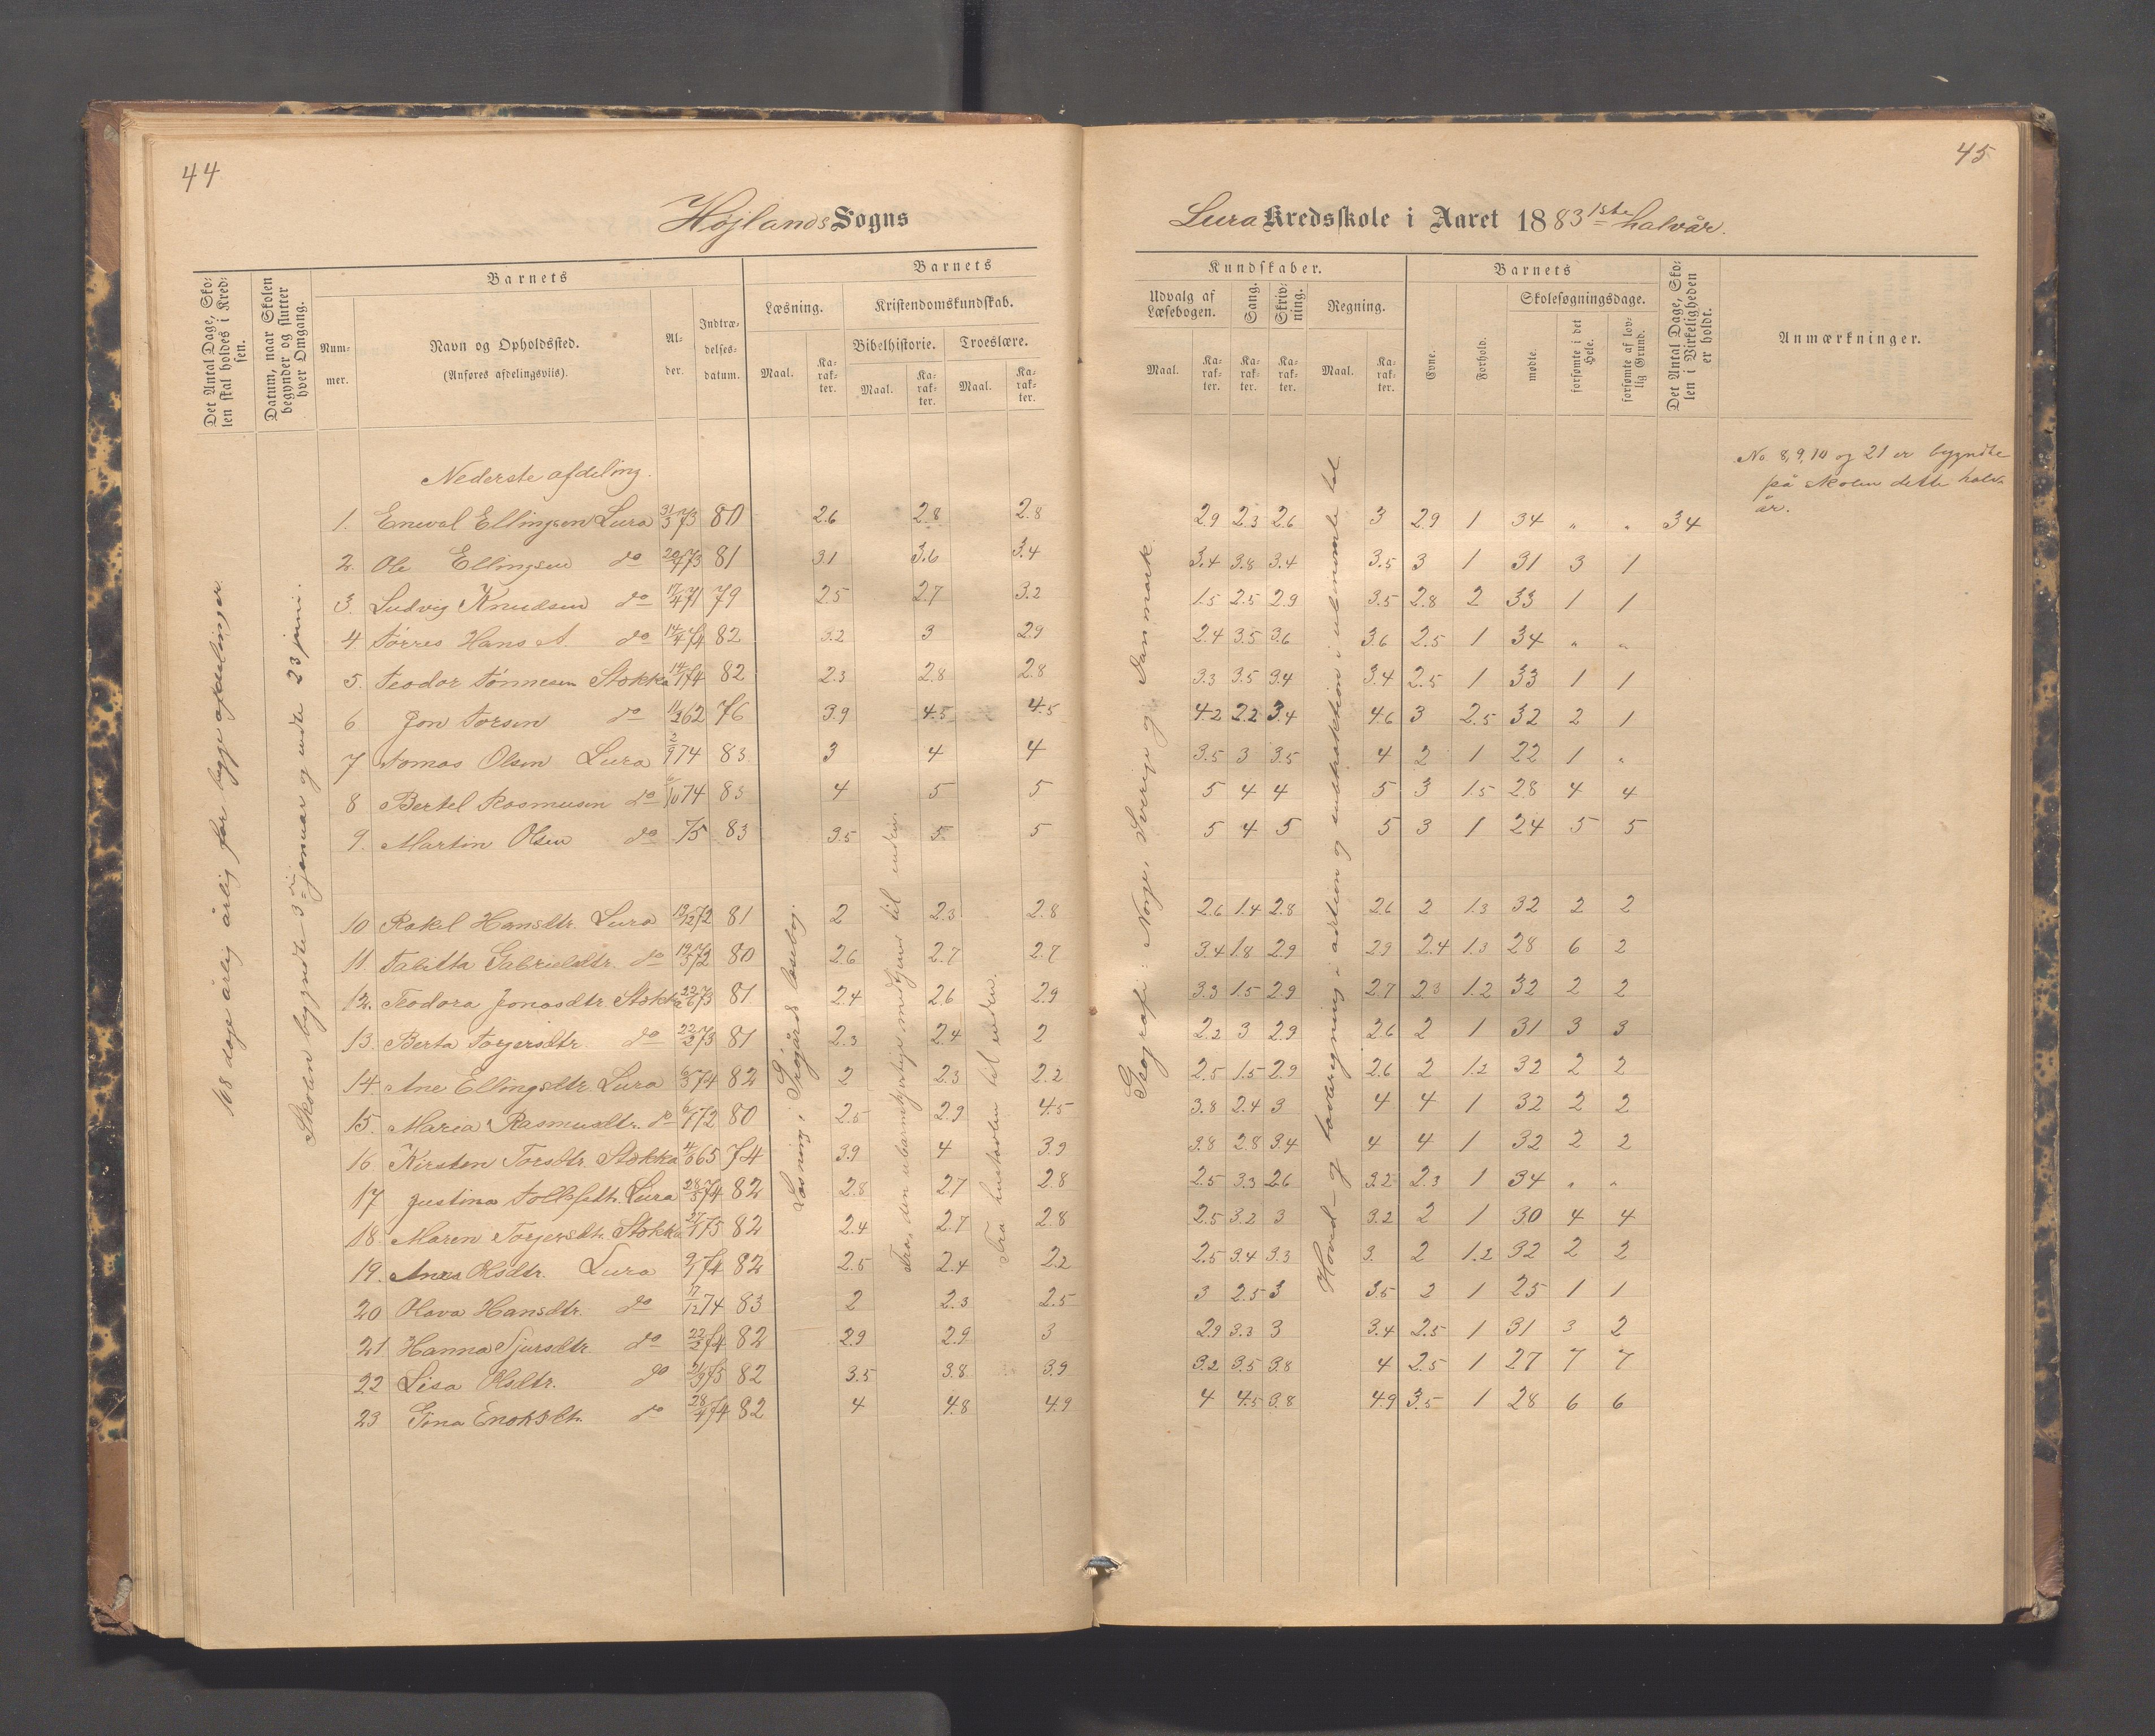 44
Højlands Sogns
Det Antal Dage, Sko-
len skal holdes i Kred-
sen.
Datum, naar Skolen
begynder og slutter
hver Omgang.
Barnets
Num-
mer.
Navn og Opholdssted.
(Anføres afdelingsviis).
Al-
der.
Indtræ-
delses-
datum.
Barnets
Læsning.
Kristendomskundskab.
Bibelhistorie.
Troeslære.
Maal.
Ka-
rak-
ter.
Maal.
Ka-
rak-
ter.
Maal.
Ka-
rak-
ter.
108 dage årlig for begge afdelinger.
Skolen begyndte 3die januar og endte 23 juni.
Nederste afdeling.
1. Eneval Ellingsen Lura 31/3 73 80 2.6 2.8 2.8
2. Ole Ellingsen do 20/4 73 81 3.1 3.6 3.4
3. Ludvig Knudsen do 17/4 71 79 2.5 2.7 3.2
4. Tørres Hans A. do 14/4 74 82 3.2 3 2.9
5. Teodor Tønnesen Stokka 74 82 2.3 2.8 2.8
6 Jon Torsen do 62 76 3.9 4.5 4.5
7 Tomas Olsen Lura 2/9 74 83 3 4 4
8 Bertel Rasmusen do 74 83 4 5 5
9. Martin Olsen do 75 83 3.5 5 5
10 Rakel Hansdtr. Lura 72 81 2 2.3 2.8
11. Tabitta Gabrielsdtr. do 72 80 2.6 2.7 2.7
12. Teodora Jonasdtr Stokka 22/6 73 81 2.4 2.6 2.9
13. Berta Torgersdtr. do 73 81 2.3 2.4 2
14. Ane Ellingsdtr. Lura 74 82 2 2.3 2.2
15. Maria Rasmusdtr. do 72 80 2.5 2.9 4.5
16 Kirsten Torsdtr. Stokka 65 74 3.9 4 3.9
17 Justina Tollefsdtr. Lura 74 82 2.8 2.7 2.8
18. Maren Torgersdtr. Stokka 27/1 75 82 2.4 2.7 2.8
19. Anna Olsdtr. Lura 9/1 74 82 2.5 2.4 2.2
20 Olava Hansdtr. do 17/12 74 83 2 2.3 2.5
21 Hanna Sjursdtr. do 22/2 74 82 2.9 2.9 3
22 Lisa Olsdtr. do 75 82 3.5 3.8 3.9
23 Tina Enoksdtr. do 28/4 74 82 4 4.8 4.9
Læsning i Sregårds læsebog.
Fra den ubarmhjertige medtjener til enden.
Fra hustavlen til enden.
45
Lura Kredsskole i Aaret 1883 1ste halvår.
Kundskaber.
Udvalg af
Læsebogen.
Sang.
Skriv-
ning.
Regning.
Maal.
Ka-
rak-
ter.
Ka-
rak-
ter.
Ka-
rak-
ter.
Maal.
Ka-
rak-
ter.
Barnets
Evne.
Forhold.
Skolesøgningsdage.
mødte.
forsømte i det
Hele.
forsømte af lov-
lig Grund.
Det Antal Dage, Sko-
len i Virkeligheden
er holdt.
Anmærkninger.
Geografi: Norge, Sverige og Danmark.
Hoved- og tavleregning: adition og subtraktion i ubenævnte tal.
No. 8, 9, 10 og 21 er begyndte
på skolen dette halv-
år.
2.9 2.3 2.6 3 2.9 1 34 " " 34
3.4 3.8 3.4 3.5 3 1 31 3 1
1.5 2.5 2.9 3.5 2.8 2 33 1 1
2.4 3.5 3.6 3.6 2.5 1 34 " "
3.3 3.5 3.4 3.4 2.5 1 33 1 1
4.2 2.2 3.4 4.6 3 2.5 32 2 1
3.5 3 3.5 4 2 1 22 1 "
5 4 4 5 3 1.5 28 4 4
5 4 5 5 3 1 24 5 5
2.6 1.4 2.8 2.6 2 1.3 32 2 2
3.4 1.8 2.9 2.9 2.4 1.3 28 6 2
3.3 1.5 2.9 2.7 2.3 1.2 32 2 2
2.2 3 2.9 2.6 2 1 31 3 3
2.5 1.5 2.9 2.6 2 1.2 32 2 2
3.8 2.4 3 4 4 1 32 2 2
3.8 2.8 3.4 4 4 1 32 2 2
2.5 3.3 2.6 3.2 2.3 1 34 " "
2.5 3.2 3 3.2 2 1 30 4 4
2.5 3.4 3.3 3. 2 1.2 32 2 2
3 2.5 3 3.5 2 1 25 1 1
2.9 3.3 3 3.4 2.5 1 31 3 2
3.2 3.5 3.8 4 2.5 1 27 7 7
4 4.5 3.8 4.9 3.5 1 28 6 6